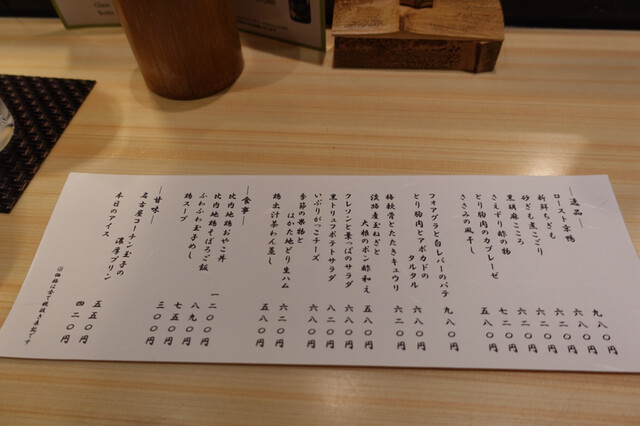 ―逸品―
ロースト京鴨 九八〇円
新鮮ちぎも 六八〇円
砂ぎも煮こごり 六二〇円
黒胡麻こころ 六二〇円
さえずり酢の物 六二〇円
とり胸肉のカプレーゼ 七二〇円
ささみの風干し 五八〇円
フォアグラと白レバーのパテ 九八〇円
とり胸肉とアボカドの
タルタル 六八〇円
梅軟骨とたたきキュウリ 六二〇円
淡路産玉ねぎと
大根のポン酢和え 五八〇円
クレソンと葉っぱのサラダ 六八〇円
黒トリュフポテトサラダ 六八〇円
いぶりがっこチーズ 六八〇円
季節の果物と
はかた地どり生ハム 八八〇円
鶏出汁茶わん蒸し 五八〇円
―食事―
比内地鶏おやこ丼 一二〇〇円
比内地鶏そぼろご飯 八九〇円
ふわふわ玉子めし 七五〇円
鶏スープ 三〇〇円
―甘味―
名古屋コーチン玉子の
濃厚プリン 五五〇円
本日のアイス 四二〇円
※価格は全て税抜き表記です